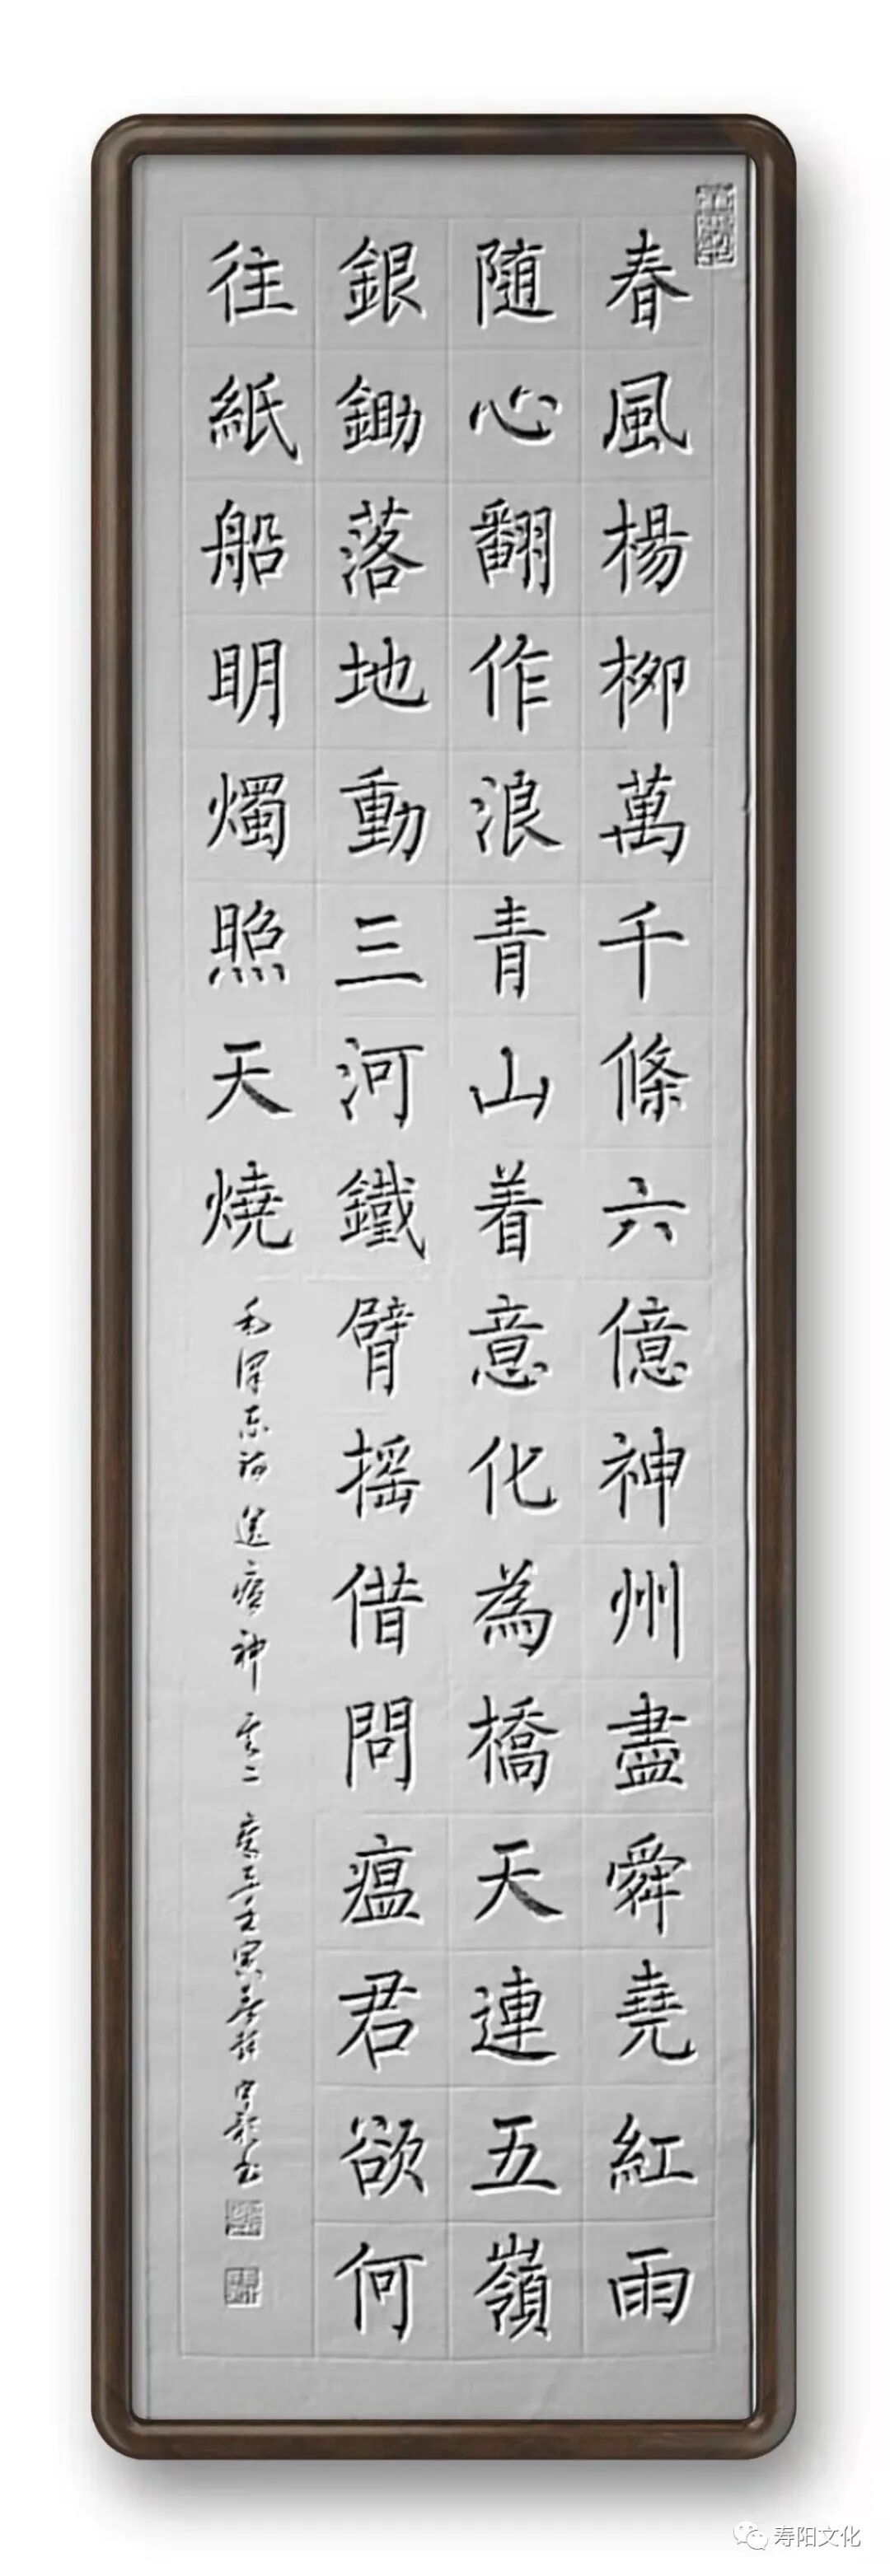 春風楊柳萬千條六億神州盡舜堯紅雨
隨心翻作浪青山着意化為橋天連五嶺
銀鋤落地動三河鐵臂摇借問瘟君欲何
往紙船明燭照天燒
毛澤东詩送瘟神其二
壬寅春
书
寿阳文化